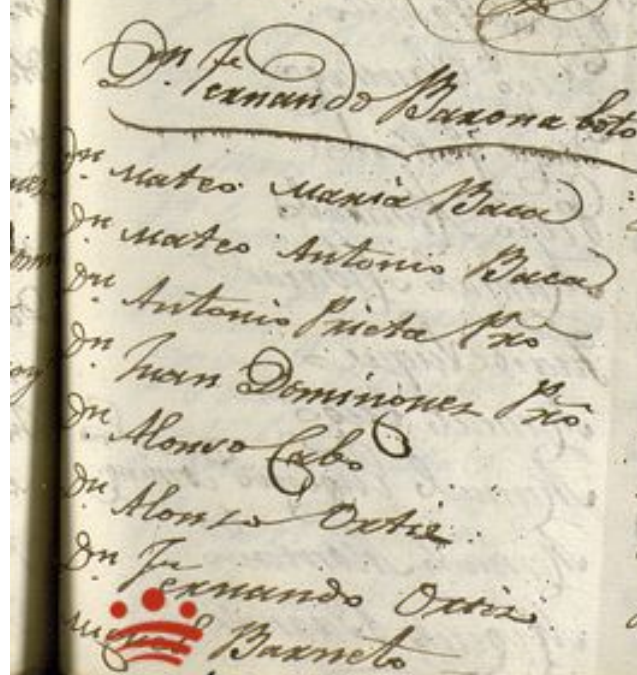 Dn. Fernando Barona boto
Dn Mateo Maria Baca
Dn Mateo Antonio Baca
Dn Antonio Prieta Pro
Dn Juan Dominguez Pro
Dn Alonso Cabo
Dn Alonso Ortiz
Dn Fernando Ortiz
Miguel Barneto